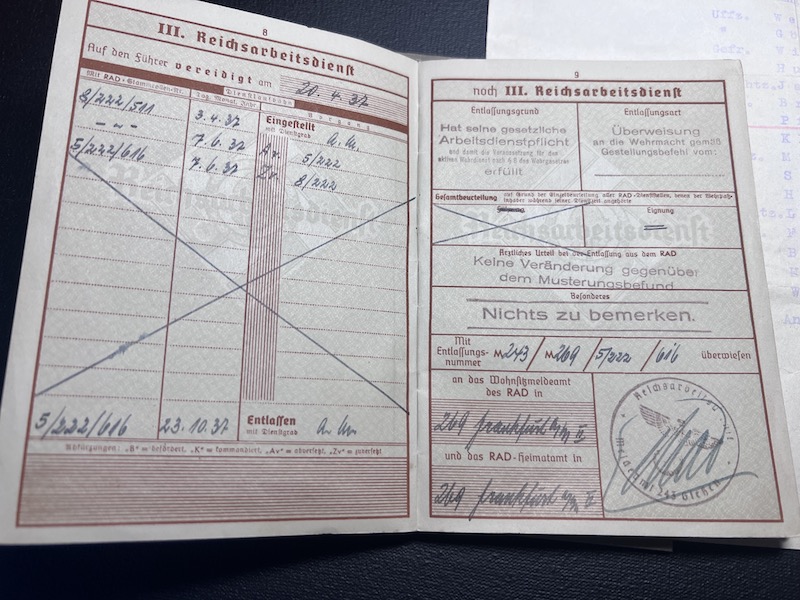 8
III. Reichsarbeitsdienst
Auf den Führer vereidigt am 20. 4. 37
Mit RAD-Stammrollen-Nr. Tag, Monat, Jahr Dienstlaufbahn Vorgang
8/222/511 3. 4. 37 Eingestellt mit Dienstgrad A. M.
- " - 7. 6. 37 Av. 5/222
5/222/616 7. 6. 37 Zv. 8/222
5/222/616 23. 10. 37 Entlassen mit Dienstgrad
Abkürzungen: „B" = befördert, „K" = kommandiert, „Av" = abversetzt, „Zv" = zuversetzt
9
noch III. Reichsarbeitsdienst
Entlassungsgrund Entlassungsart
Hat seine gesetzliche
Arbeitsdienstpflicht
und damit die Voraussetzung für den
aktiven Wehrdienst nach § 8 des Wehrgesetzes
erfüllt
Überweisung
an die Wehrmacht gemäß
Gestellungsbefehl vom:
Gesamtbeurteilung auf Grund der Einzelbeurteilung aller RAD-Dienststellen, denen der Wehrpaß-
inhaber während seiner Dienstzeit angehörte
Führung Eignung
Reichsarbeitsdienst
Ärztliches Urteil bei der Entlassung aus dem RAD
Keine Veränderung gegenüber
dem Musterungsbefund
Besonderes
Nichts zu bemerken.
Mit
Entlassungs-
nummer M243 / M269 / 5/222 / 616 überwiesen
an das Wohnsitzmeldeamt
des RAD in
269 Frankfurt a/M II
und das RAD-Heimatamt in
269 Frankfurt a/M II
Uffz.
"
Gefr.